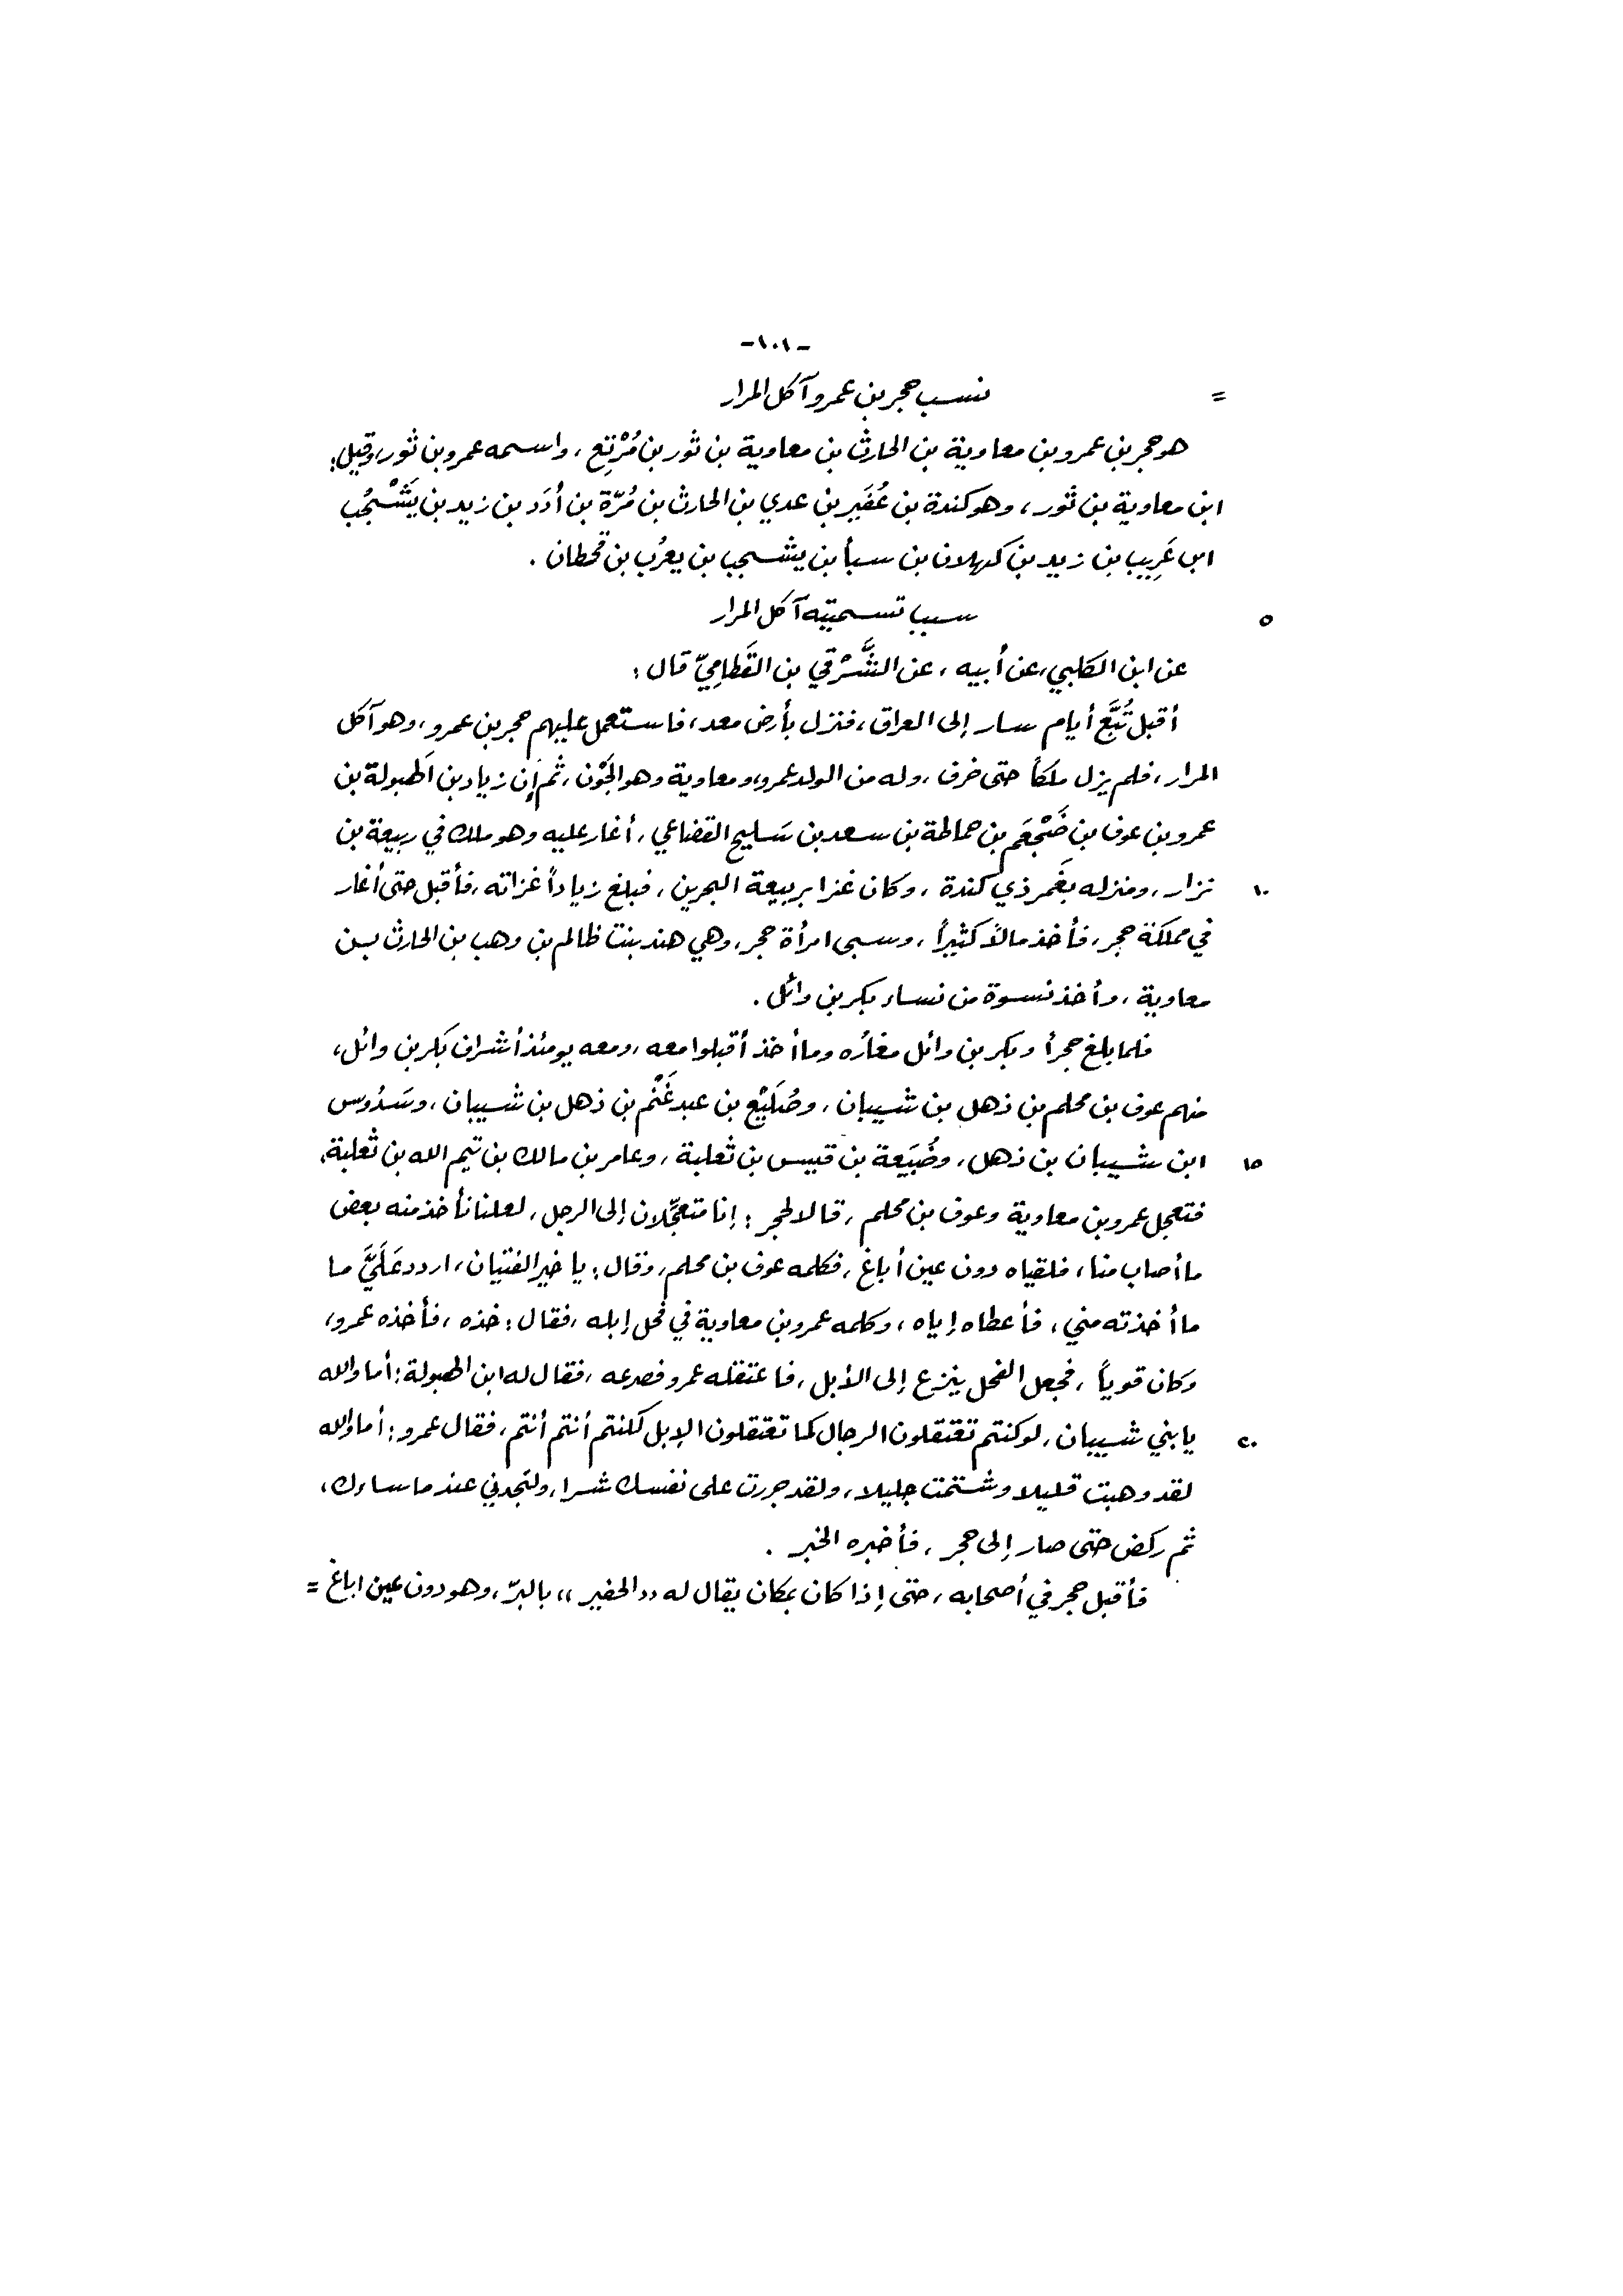 -١٠١-
= نسب حجر بن عمرو آكل المرار
هو حجر بن عمرو بن معاوية بن الحارث بن معاوية بن ثور بن مُرْتِع ، واسمه عمرو بن ثور ، وقيل :
ابن معاوية بن ثور ، وهو كندة بن عُفَير بن عدي بن الحارث بن مُرّة بن أُدَد بن زيد بن يَشْجُب
ابن عَرِيب بن زيد بن كهلان بن سبأ بن يشجب بن يعرُب بن قحطان .
٥ سبب تسميته آكل المرار
عن ابن الكلبي ، عن أبيه ، عن الشَّرْقي بن القَطَامِيّ قال :
أقبل تُبَّع أيام سار إلى العراق ، فنزل بأرض معد ، فاستعمل عليهم حجر بن عمرو ، وهو آكل
المرار ، فلم يزل ملكاً حتى خرف ، وله من الولد عمرو ، ومعاوية وهو الجَوْن ، ثم إن زياد بن الهبولة بن
عمرو بن عوف بن ضَجْعَم بن حماطة بن سعد بن سَليح القضاعي ، أغار عليه وهو ملك في ربيعة بن
١٠ نزار ، ومنزله بغَمر ذي كندة ، وكان غزا بربيعة البحرين ، فبلغ زياداً غزاته ، فأقبل حتى أغار
في مملكة حجر ، فأخذ مالاً كثيراً ، وسبى امرأة حجر ، وهي هند بنت ظالم بن وهب بن الحارث بن
معاوية ، وأخذ نسوة من نساء بكر بن وائل .
فلما بلغ حجراً وبكر بن وائل مغاره وما أخذ أقبلوا معه ، ومعه يومئذ أشراف بكر بن وائل ،
منهم عوف بن محلم بن ذهل بن شيبان ، وصُلَيْع بن عبد غَنْم بن ذهل بن شيبان ، وسَدُوس
١٥ ابن شيبان بن ذهل ، وضُبَيعة بن قيس بن ثعلبة ، وعامر بن مالك بن تيم الله بن ثعلبة ،
فتعجل عمرو بن معاوية وعوف بن محلم ، قالا لحجر : إنا متعجّلان إلى الرجل ، لعلنا نأخذ منه بعض
ما أصاب منا ، فلقياه دون عين أباغ ، فكلمه عوف بن محلم ، وقال : يا خير الفتيان ، اردد عَلَيَّ ما
ما أخذته مني ، فأعطاه إياه ، وكلمه عمرو بن معاوية في فحل إبله ، فقال : خذه ، فأخذه عمرو ،
وكان قوياً ، فجعل الفحل ينزع إلى الأبل ، فاعتقله عمرو فصرعه ، فقال له ابن الهبولة : أما والله
٢٠ يا بني شيبان ، لو كنتم تعتقلون الرجال كما تعتقلون الإبل لكنتم أنتم أنتم ، فقال عمرو : أما والله
لقد وهبت قليلا وشتمت جليلا ، ولقد جررت على نفسك شرا ، ولتجدني عند ما ساءك ،
ثم ركض حتى صار إلى حجر ، فأخبره الخبر .
فأقبل حجر في أصحابه ، حتى إذا كان بمكان يقال له ,,الحفير،، بالبرّ ، وهو دون عين اباغ =